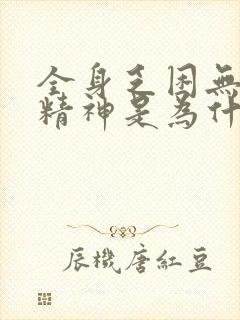 全身乏困無
精神是為什
辰機唐紅豆